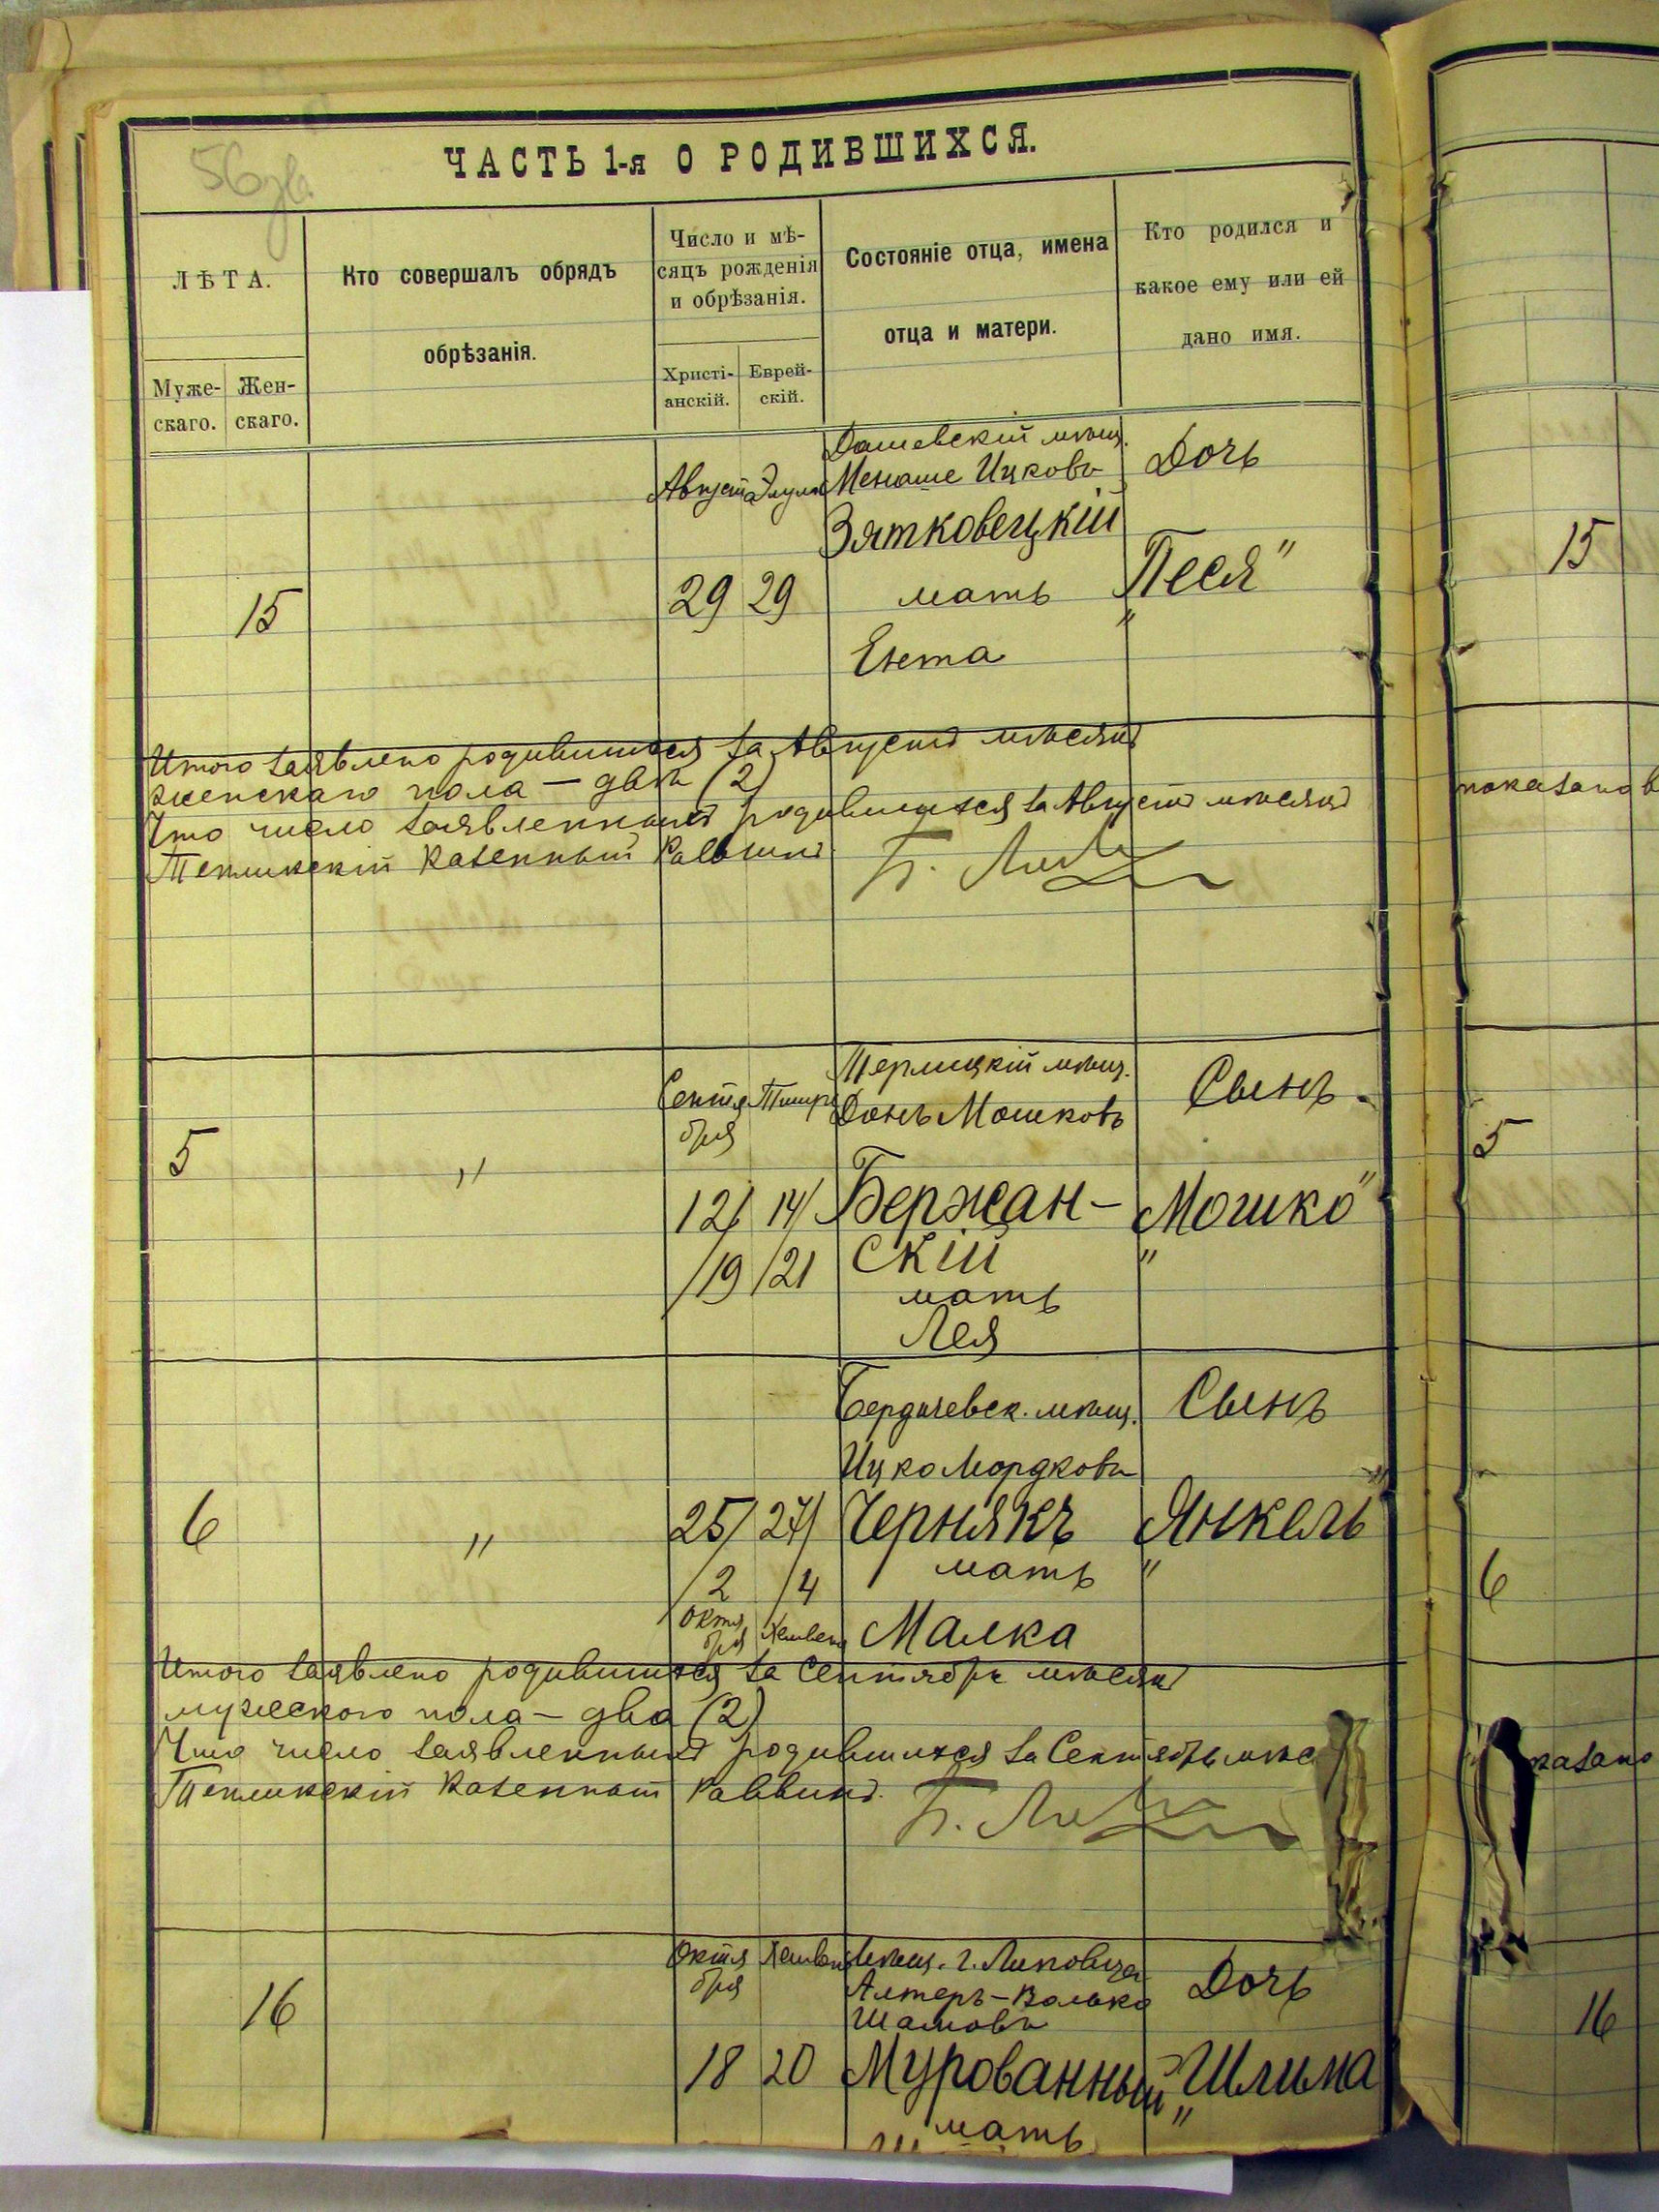 56 зв.
ЧАСТЬ 1-я О РОДИВШИХСЯ.
ЛѢТА.
Муже-
скаго.
Жен-
скаго.
Кто совершалъ обрядъ
обрѣзанія.
Число и мѣ-
сяцъ рожденія
и обрѣзанія.
Христі-
анскій.
Еврей-
скій.
Состояніе отца, имена
отца и матери.
Кто родился и
какое ему или ей
дано имя.
Дашевскій мѣщ.
Августа Элула Менаше Ицковъ Дочь
Зятковецкій
15 29 29 мать „Песя"
Ента
15
Итого заявлено родившихся за Августъ мѣсяцъ
женскаго пола — двѣ (2)
Что число заявленныхъ родившихся за Августъ мѣсяцъ
показано в
Тепликскій Казенный Раввинъ
Терлицкій мѣщ.
Сентя Тишри Донъ Мошковъ Сынъ
бря
5 "
12/ 14/ Бержан- „Мошко"
/19 /21 скій
мать
Лея
5
Бердичевск. мѣщ. Сынъ
Ицко Мордковъ
6 " 25/ 27/ Чернякъ „Янкель"
/2 /4 мать
Октя
бря Хешвана Малка
6
Итого заявлено родившихся за Сентябрь мѣсяцъ
мужескаго пола — два (2)
Что число заявленныхъ родившихся за Сентябрь мѣс
казано
Тепликскій Казенный Раввинъ.
Октя Хешвана Мѣщ. г. Липовца
бря Алтеръ-Волько Дочь
16 Шамовъ
18 20 Мурованный „Шлима
мать
16